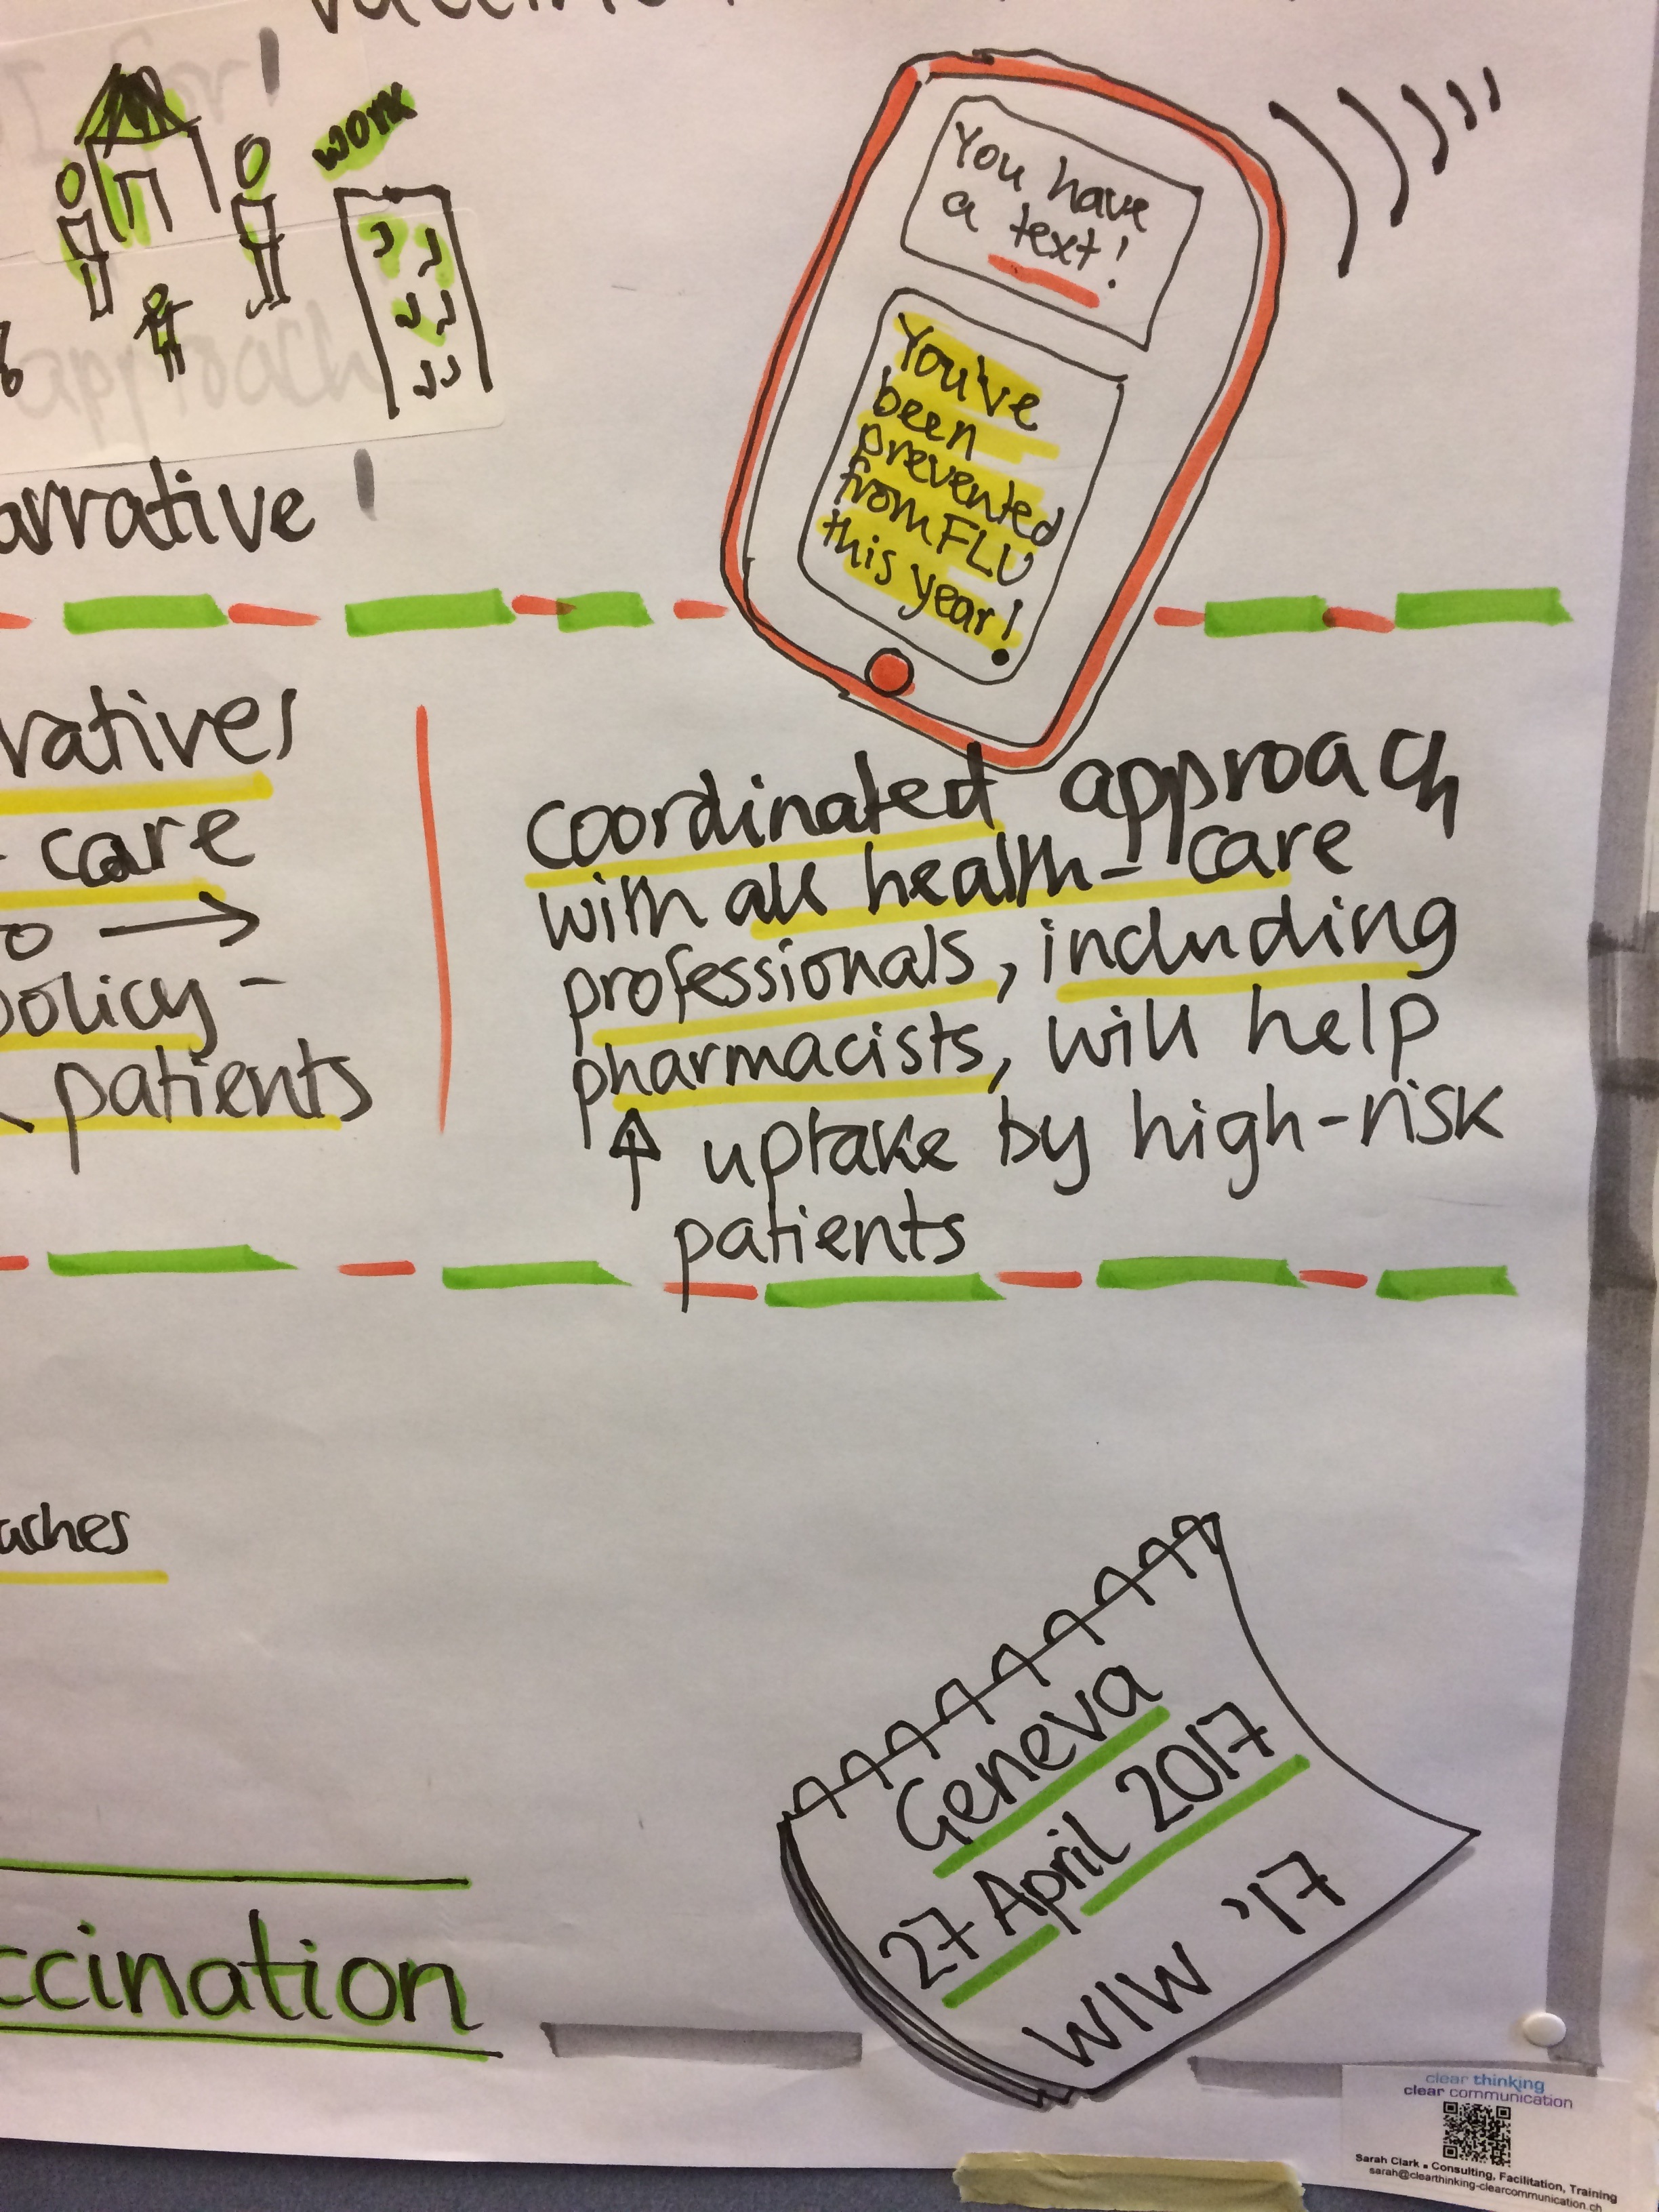 work
You have
a text!
You've
been
prevented
from FLU
this year!
arrative
ratives
care
policy-
patients
coordinated approach
with all health-care
professionals, including
pharmacists, will help
↑ uptake by high-risk
patients
aches
Geneva
27 April 2017
WIW '17
ccination
clear thinking
clear communication
Sarah Clark • Consulting, Facilitation, Training
sarah@clearthinking-clearcommunication.ch